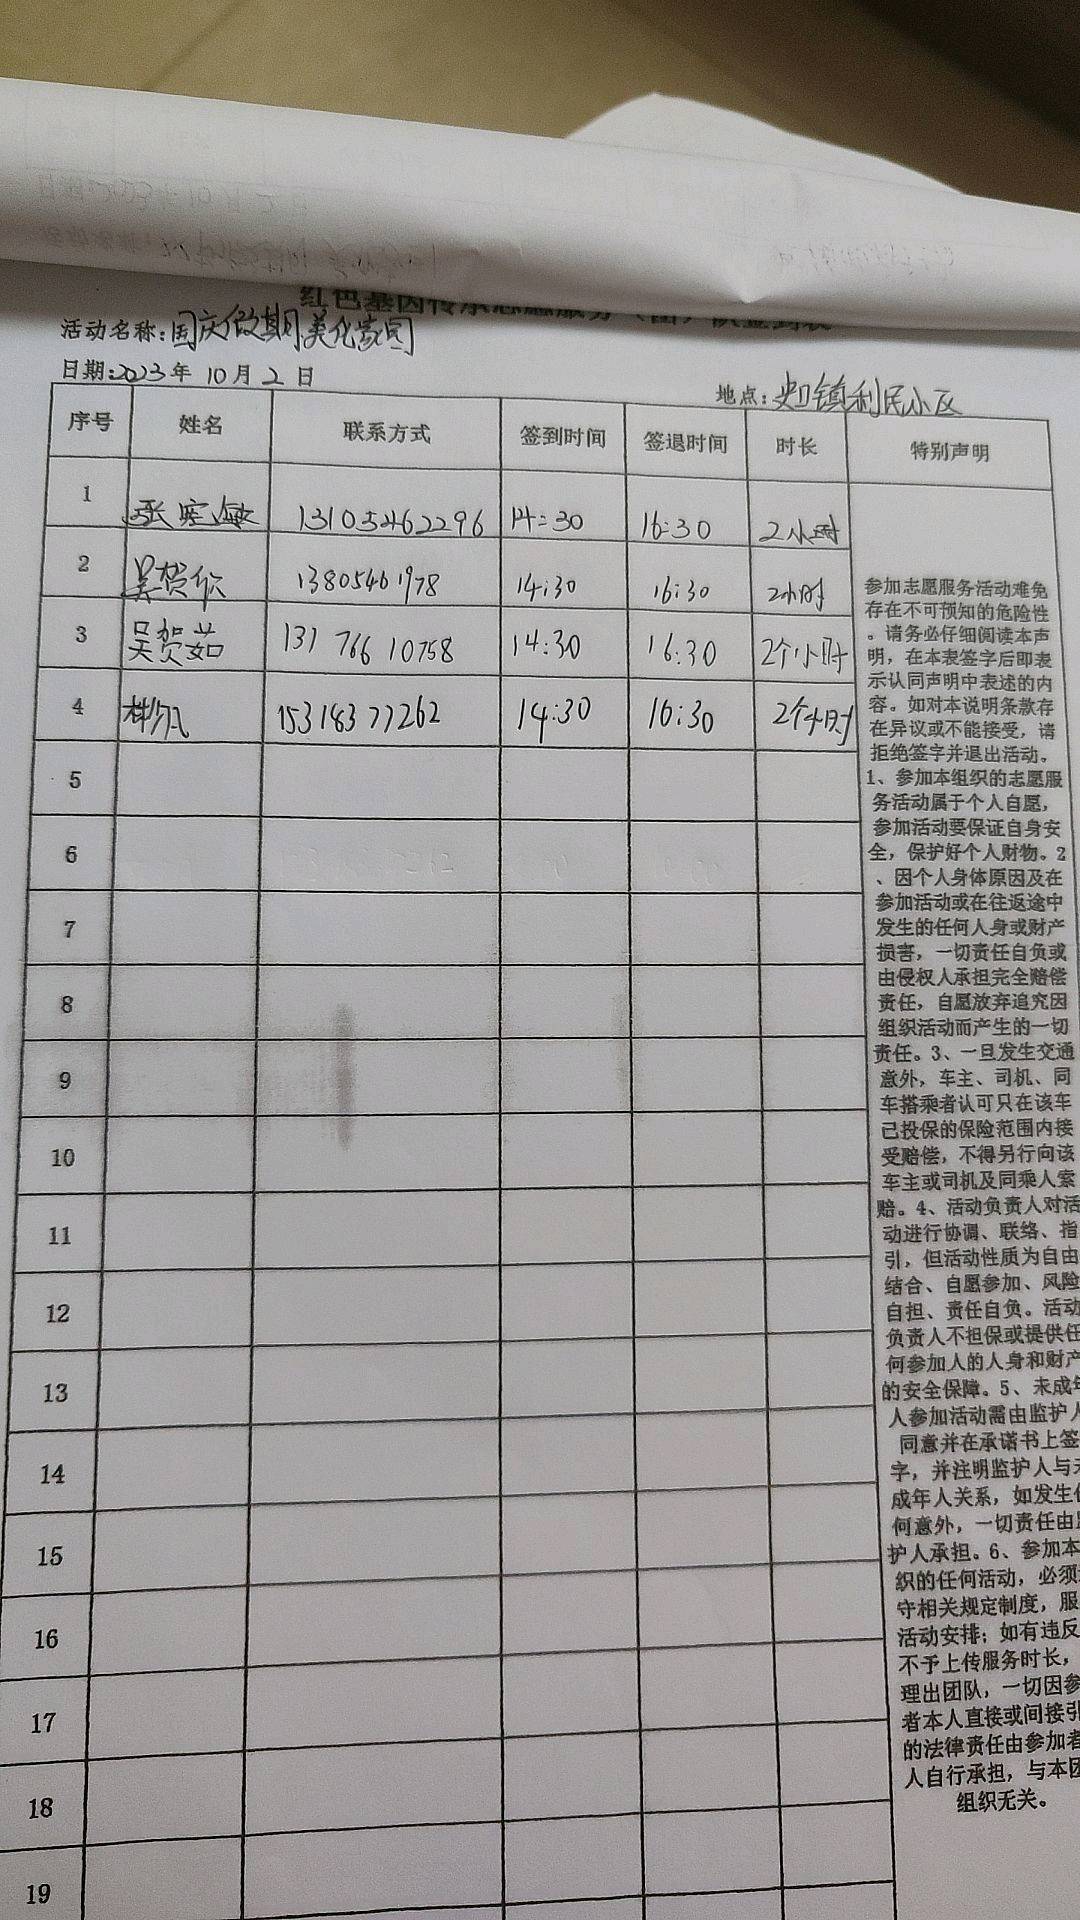 红色基因传承志愿服务（团）队签到表
活动名称:国庆假期美化家园
日期:2023年 10月 2 日
地点:史口镇利民小区
序号 姓名 联系方式 签到时间 签退时间 时长 特别声明
1 张 敏 13105462296 14:30 16:30 2小时
2 吴贺 13805461978 14:30 16:30 2小时
3 吴贺茹 131 766 10758 14:30 16:30 2个小时
4 15318377262 14:30 16:30 2个小时
5
6
7
8
9
10
11
12
13
14
15
16
17
18
19
参加志愿服务活动难免
存在不可预知的危险性
。请务必仔细阅读本声
明，在本表签字后即表
示认同声明中表述的内
容。如对本说明条款存
在异议或不能接受，请
拒绝签字并退出活动。
1、参加本组织的志愿服
务活动属于个人自愿，
参加活动要保证自身安
全，保护好个人财物。2
、因个人身体原因及在
参加活动或在往返途中
发生的任何人身或财产
损害，一切责任自负或
由侵权人承担完全赔偿
责任，自愿放弃追究因
组织活动而产生的一切
责任。3、一旦发生交通
意外，车主、司机、同
车搭乘者认可只在该车
已投保的保险范围内接
受赔偿，不得另行向该
车主或司机及同乘人索
赔。4、活动负责人对活
动进行协调、联络、指
引，但活动性质为自由
结合、自愿参加、风险
自担、责任自负。活动
负责人不担保或提供任
何参加人的人身和财产
的安全保障。5、未成年
人参加活动需由监护人
同意并在承诺书上签
字，并注明监护人与未
成年人关系，如发生任
何意外，一切责任由监
护人承担。6、参加本
织的任何活动，必须
守相关规定制度，服
活动安排；如有违反
不予上传服务时长，
理出团队，一切因参
者本人直接或间接引
的法律责任由参加者
人自行承担，与本团
组织无关。